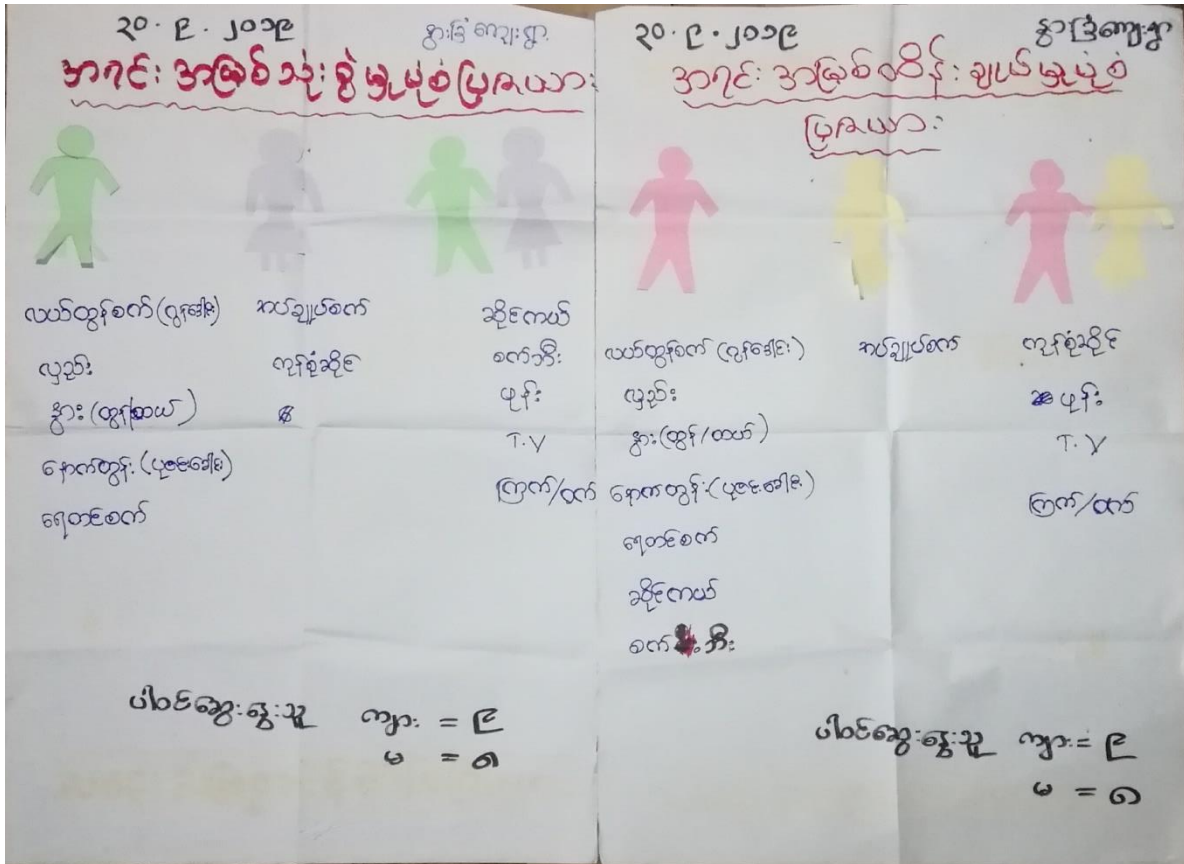 ၂၀.၉.၂၀၁၉
နွားခြံကျေးရွာ
အရင်းအမြစ်သုံးစွဲမှုပုံစံပြဇယား
လယ်ထွန်စက် (ဂွန်ဒေါင်း)
လှည်း
နွား (ထွန်/တယ်)
နောက်တွန်း (ပုဇင်းဒေါင်း)
ရေတင်စက်
အပ်ချုပ်စက်
ကုန်စုံဆိုင်
ဆိုင်ကယ်
စက်ဘီး
ဖုန်း
T.V
ကြက်/ဝက်
ပါဝင်ဆွေးနွေးသူ ကျား = ၉
မ = ၈
၂၀.၉.၂၀၁၉
နွားခြံကျေးရွာ
အရင်းအမြစ်ထိန်းချုပ်မှုပုံစံ
ပြဇယား
လယ်ထွန်စက် (ဂွန်ဒေါင်း)
လှည်း
နွား (ထွန်/တယ်)
နောက်တွန်း (ပုဇင်းဒေါင်း)
ရေတင်စက်
ဆိုင်ကယ်
စက်ဘီး
အပ်ချုပ်စက်
ကုန်စုံဆိုင်
ဖုန်း
T.V
ကြက်/ဝက်
ပါဝင်ဆွေးနွေးသူ ကျား = ၉
မ = ၈